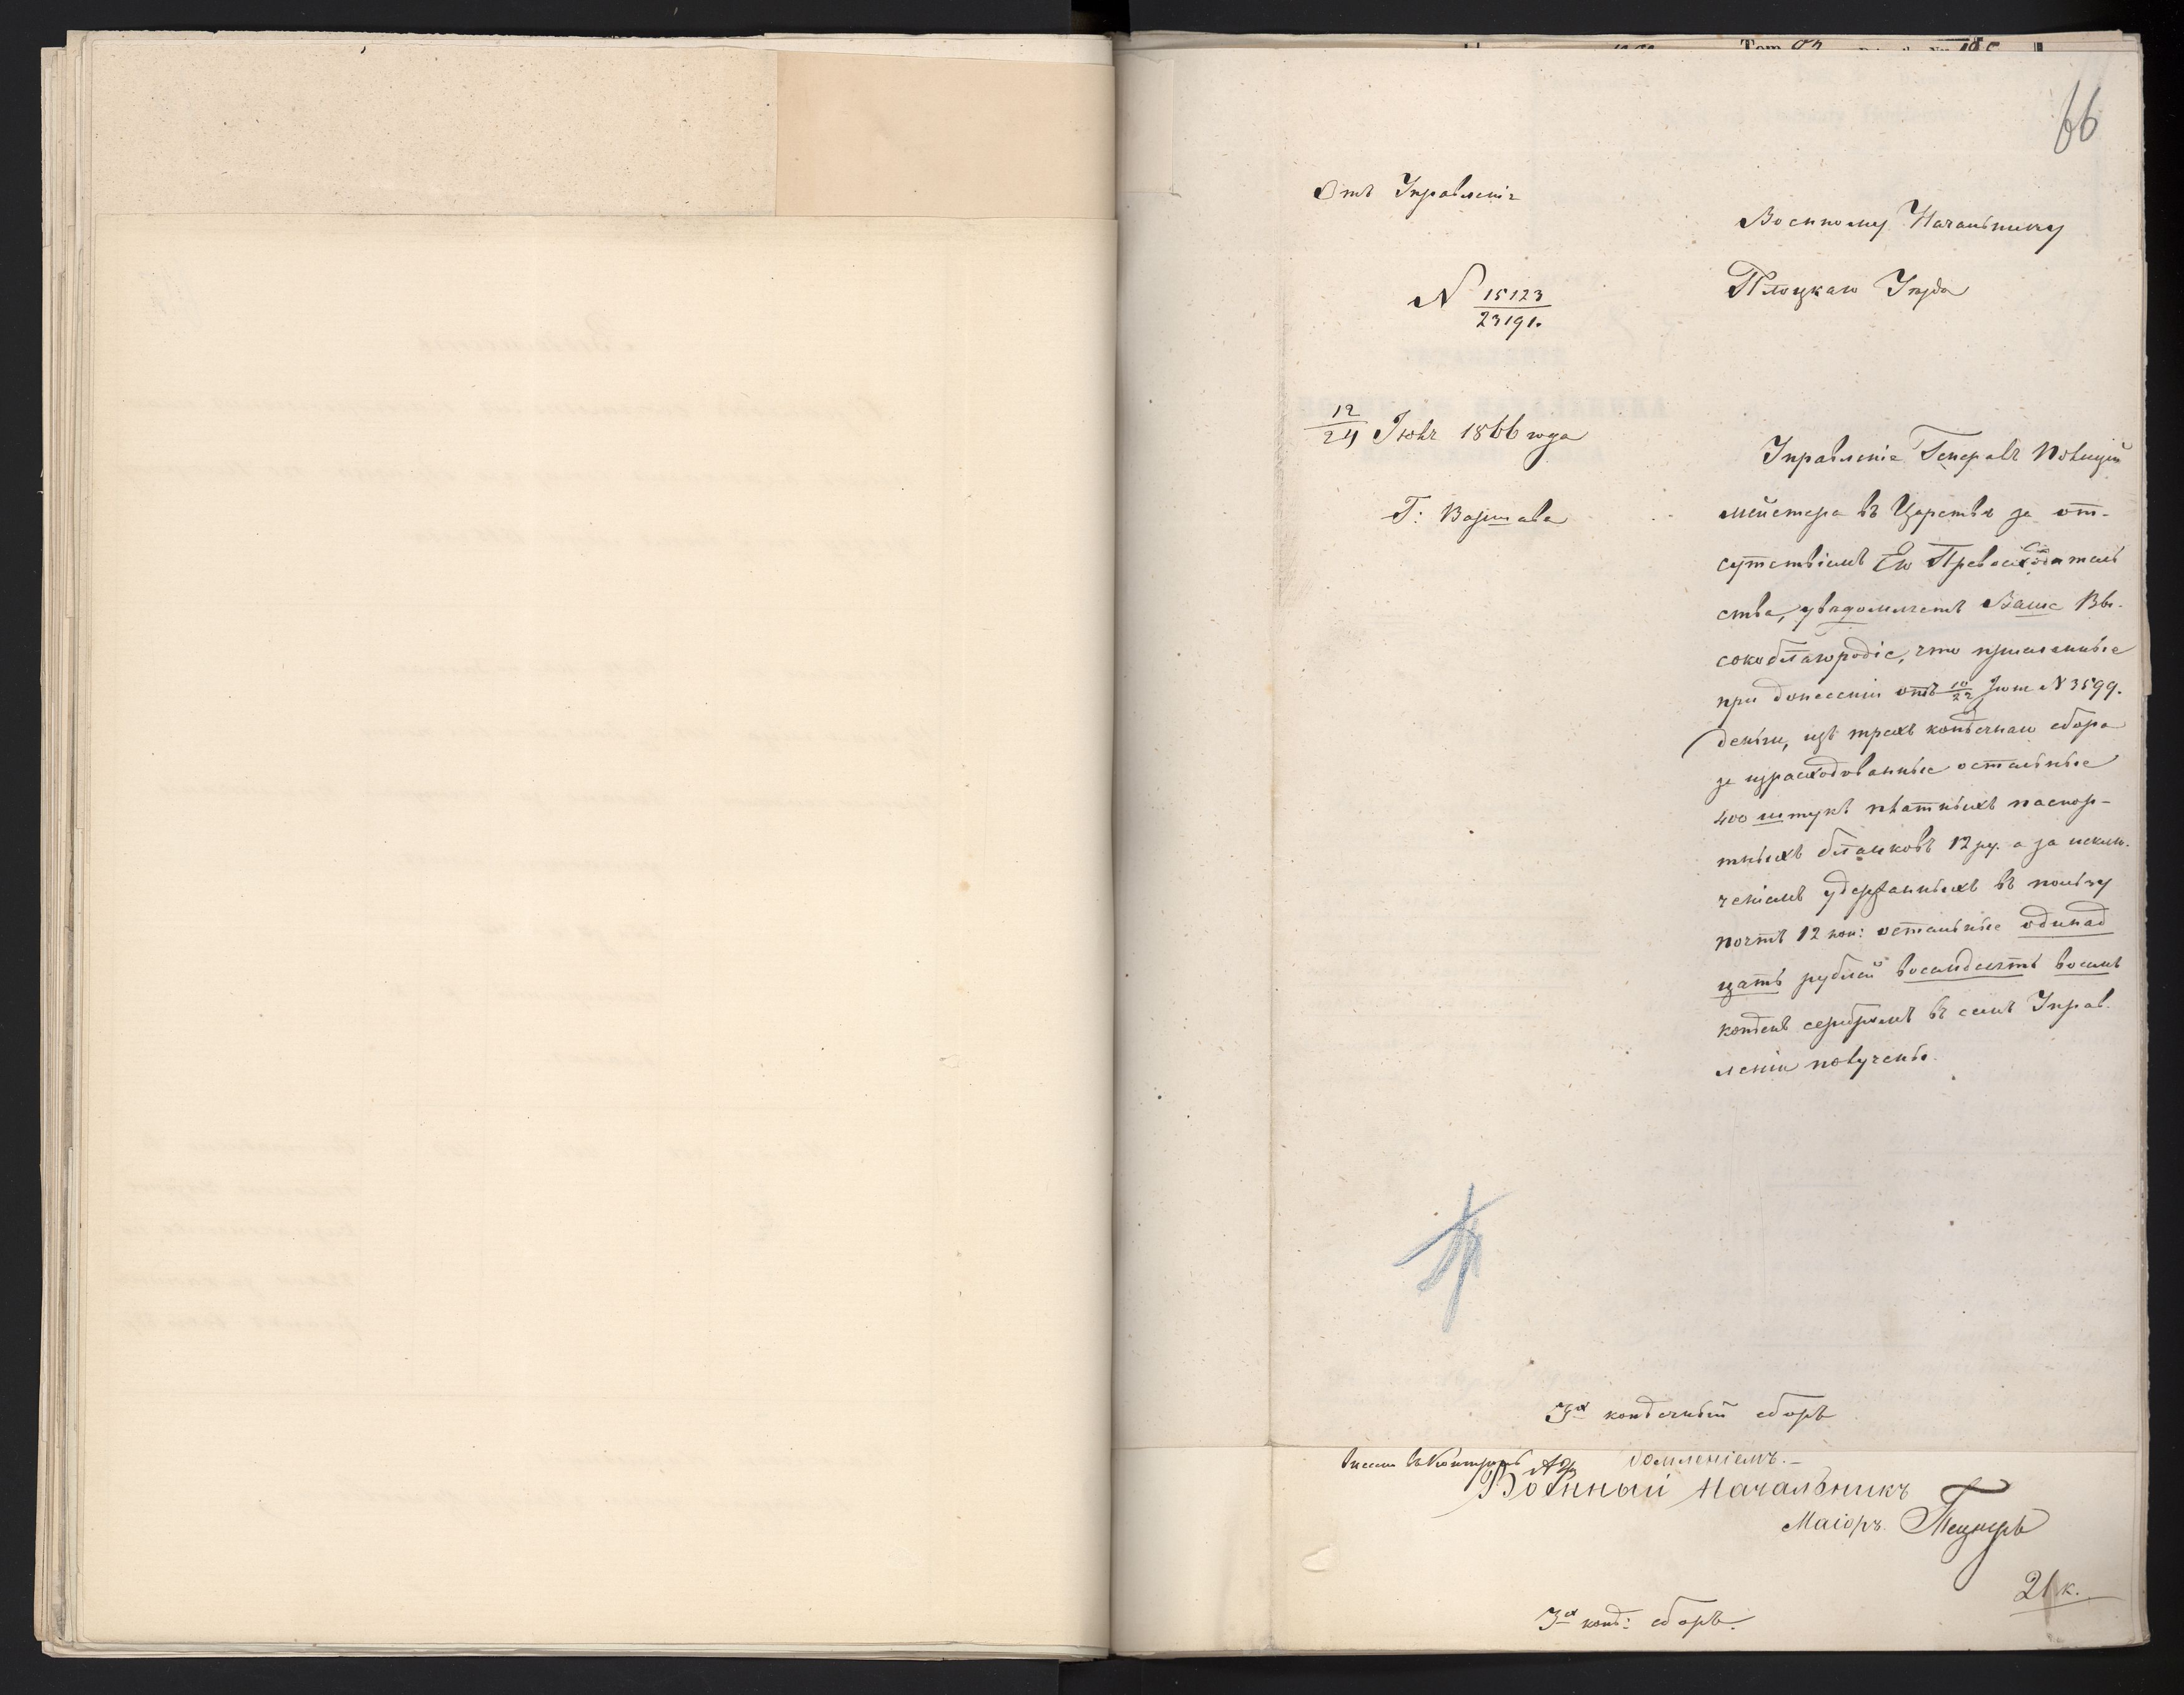 66
Отъ Управленія
Военному Начальнику
Плоцкаго Уѣзда
N 15123
23191.
12
24 Іюля 1866 года
Г: Варшава
Управленіе Генералъ Полицій
мейстера въ Царствѣ за от-
сутствіемъ Его Превосходитель
ства, увѣдомляетъ Ваше Вы-
сокоблагородіе, что присланные
при донесеніи отъ 10/22 Іюля N 3599.
деньги, изъ трехъ копѣечнаго сбора
за израсходованные остальные
400 штукъ платныхъ паспор-
тныхъ бланковъ 12 ру. а за исклю-
ченіемъ удержанныхъ въ пользу
почтъ 12 коп: остальные одинад
цать рублей восемдесятъ восемь
копѣекъ серебромъ въ семъ Управ-
леніи получены.
3х копѣечный сборъ
домленіемъ.-
Военный Начальникъ
Маіоръ
21 к.
3х коп: сборъ.